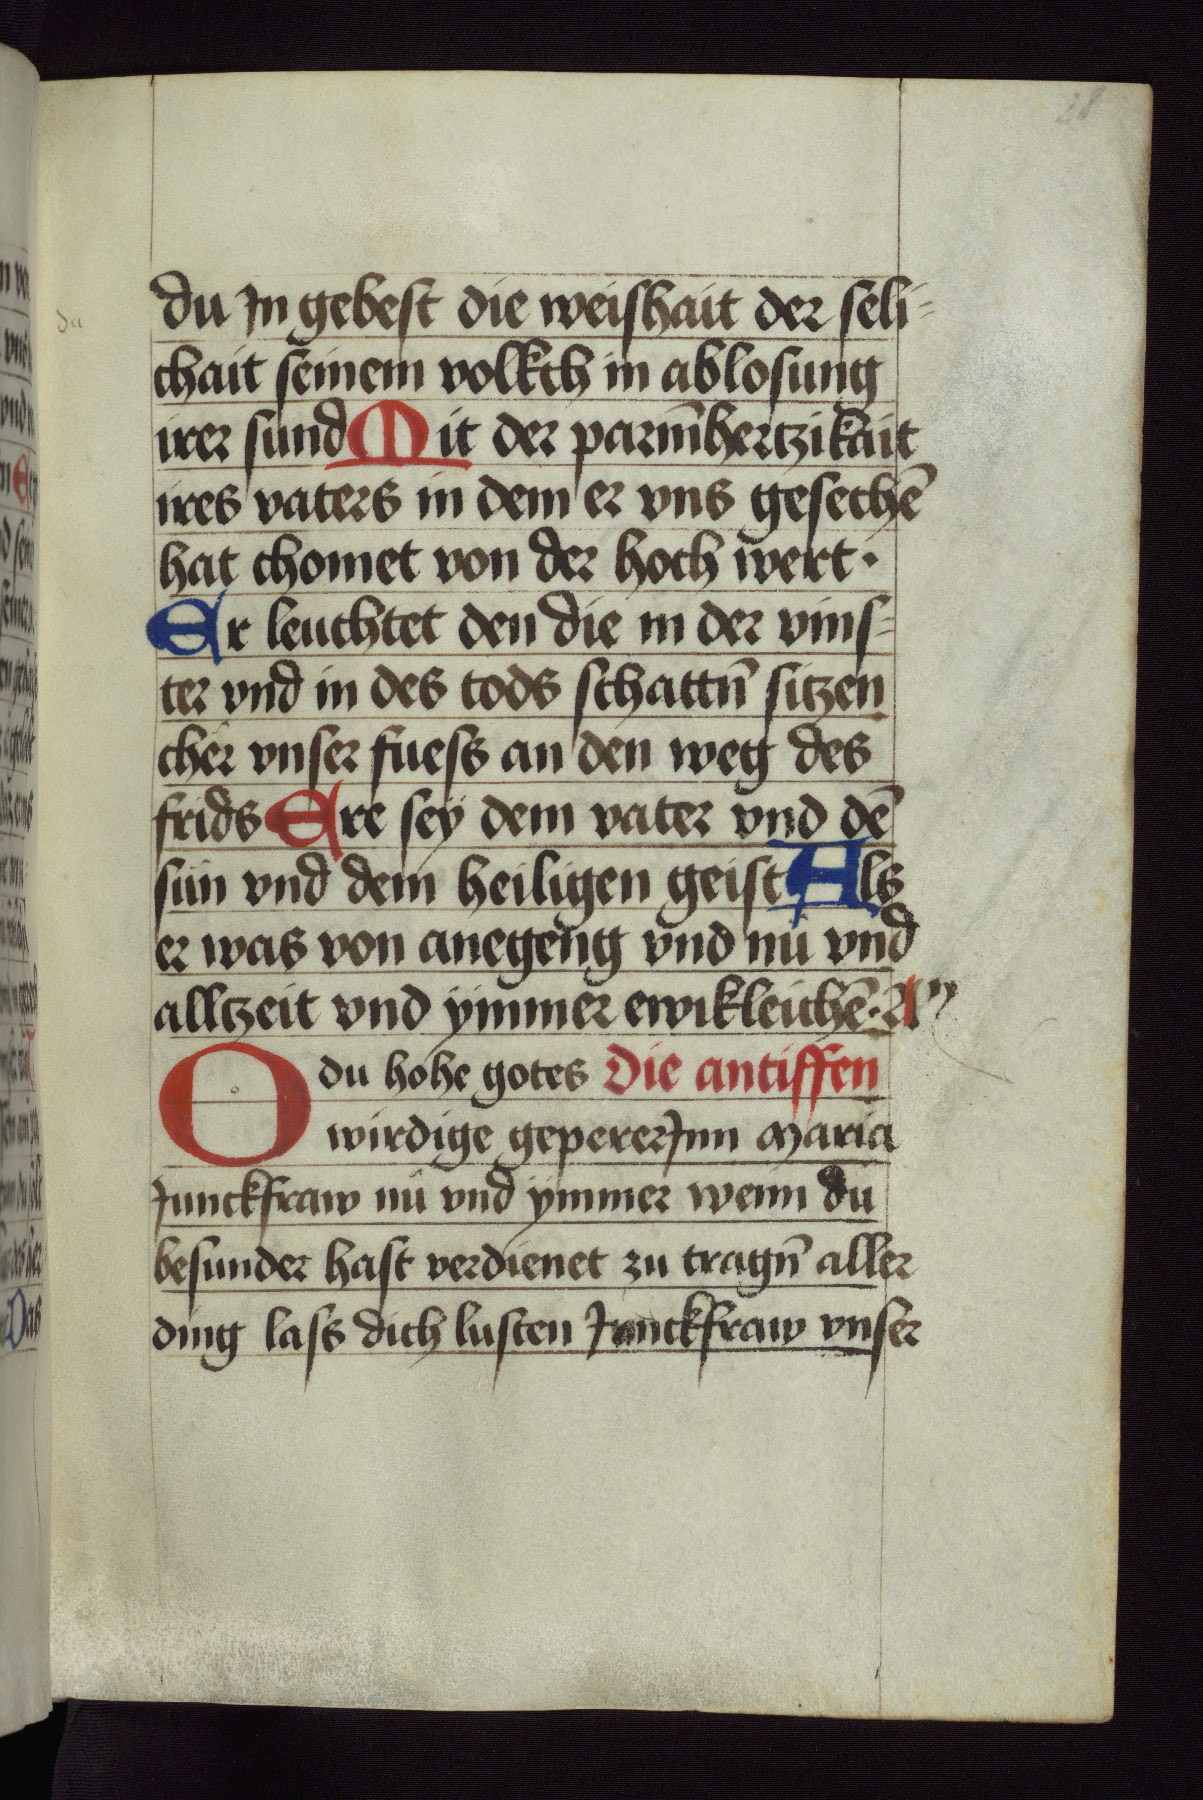 28
du Jn gebest die weishait der seli⸗
chait seinem volkch in ablosung
irer sund Mit der parm̄hertzikait
ires vaters in dem er vns gesechē
hat chomet von der hoch wert·
Er leuchtet den die in der vins⸗
ter vnd in des tods schattn̄ sitzen
cher vnser fuess an den weg des
frids Ere sey dem vater vnd dē
sün vnd dem heiligen geist Als
er was von anegeng vnd nü vnd
alltzeit vnd ymmer ewikleichē· 
O du hohe gotes Die antiffen
wirdige gepererJnn Maria
Junckfraw nü vnd ymmer wenn dü
besunder hast verdienet zu tragn̄ aller
ding lass dich lusten Junckfraw vnser